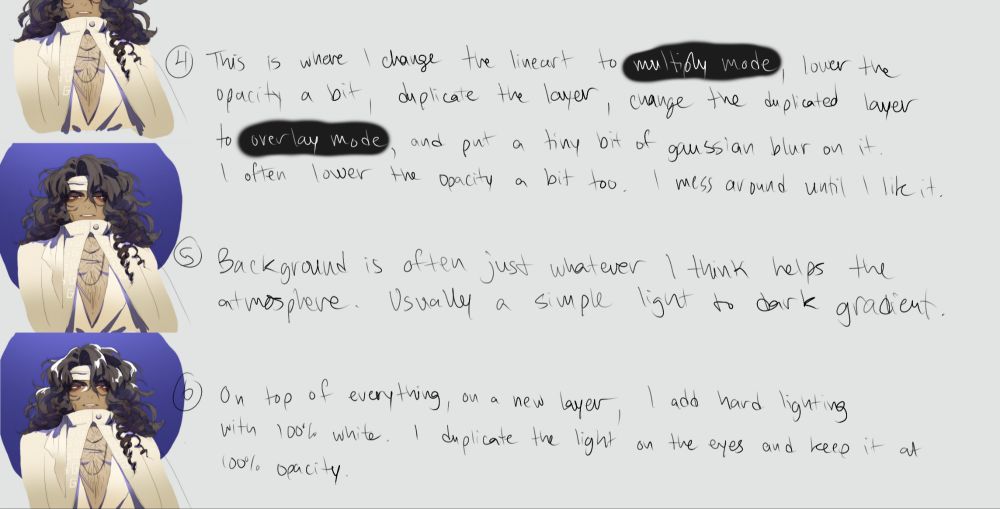 4 This is where I change the lineart to multiply mode, lower the
opacity a bit, duplicate the layer, change the duplicated layer
to overlay mode, and put a tiny bit of gaussian blur on it.
I often lower the opacity a bit too. I mess around until I like it.
5 Background is often just whatever I think helps the
atmosphere. Usually a simple light to dark gradient.
6 On top of everything, on a new layer, I add hard lighting
with 100% white. I duplicate the light on the eyes and keep it at
100% opacity.